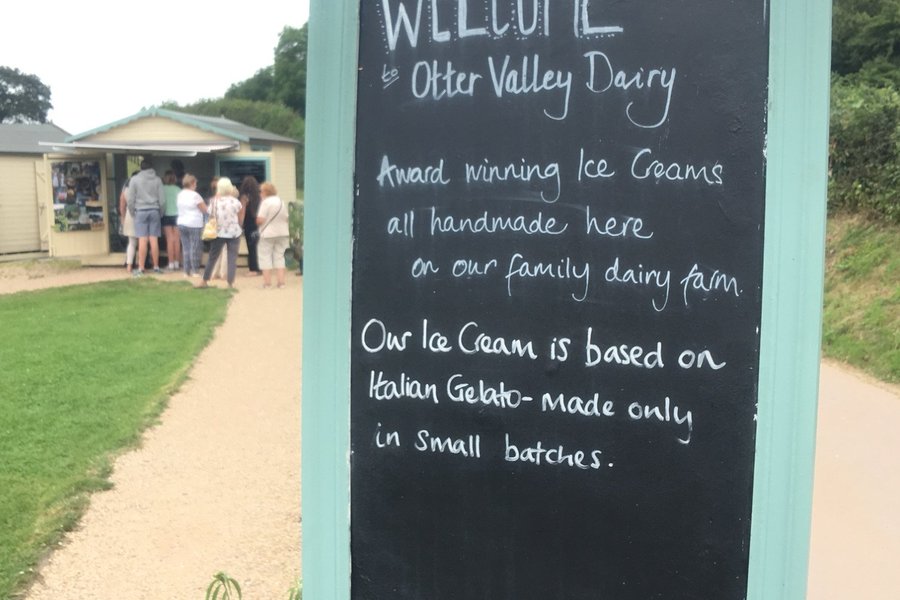 WELCOME
to Otter Valley Dairy
Award winning Ice Creams
all handmade here
on our family dairy farm.
Our Ice Cream is based on
Italian Gelato - made only
in small batches.